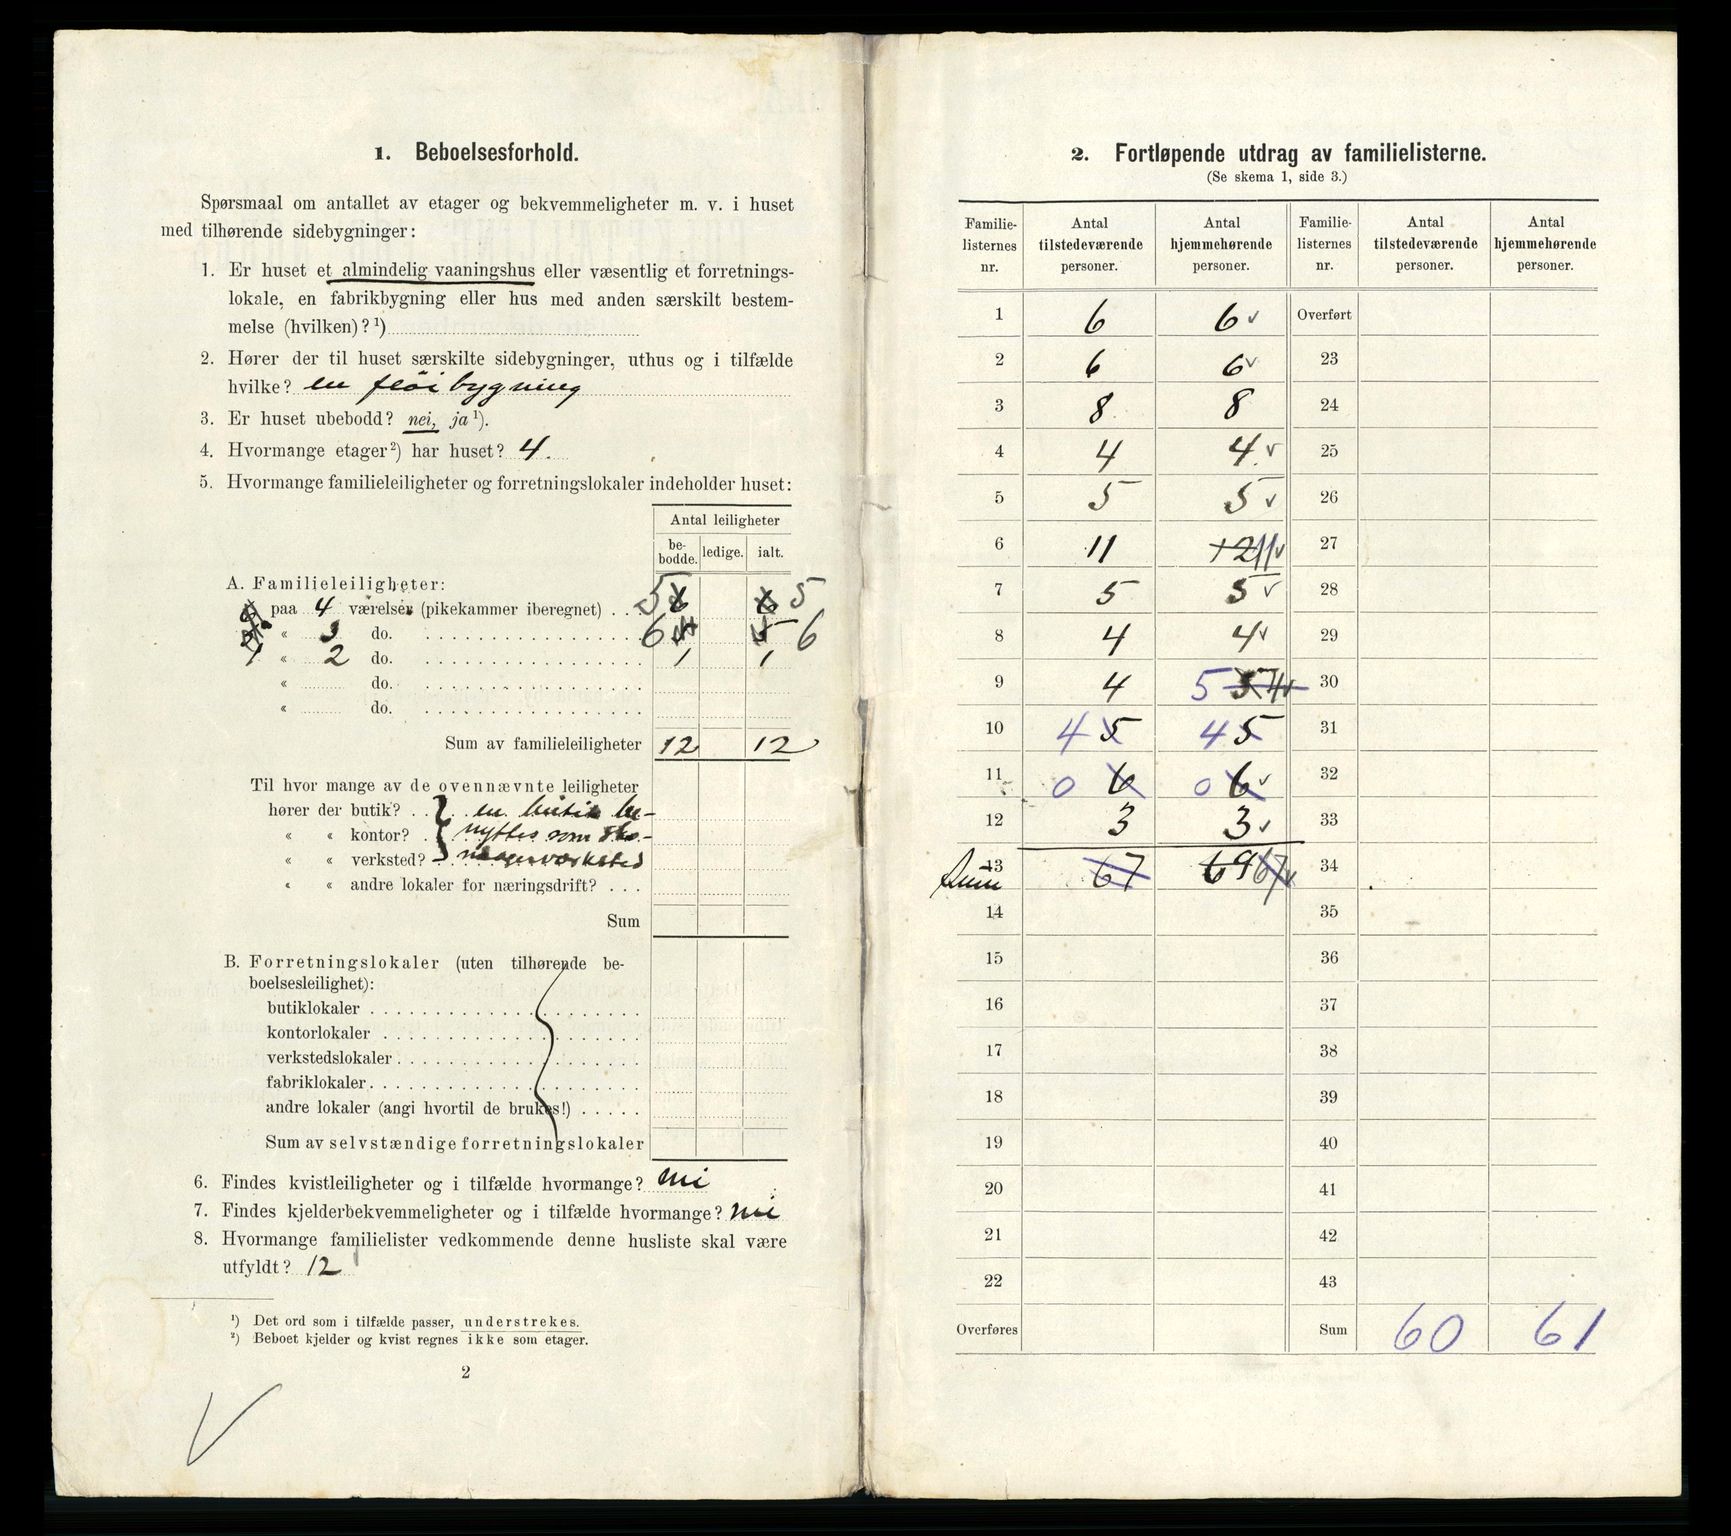 1. Beboelsesforhold.
Spørsmaal om antallet av etager og bekvemmeligheter m. v. i huset
med tilhørende sidebygninger:
1. Er huset et almindelig vaaningshus eller væsentlig et forretnings-
lokale, en fabrikbygning eller hus med anden særskilt bestem-
melse (hvilken)? ¹)
2. Hører der til huset særskilte sidebygninger, uthus og i tilfælde
hvilke? en fløibygning
3. Er huset ubebodd? nei, ja ¹).
4. Hvormange etager ²) har huset? 4.
5. Hvormange familieleiligheter og forretningslokaler indeholder huset:
Antal leiligheter
be-bodde. ledige. ialt.
A. Familieleiligheter:
paa 4 værelser (pikekammer iberegnet) . . . 5 5
« 3 do. 6 5 6
1 « 2 do. 1 1
« do.
« do.
Sum av familieleiligheter 12 12
Til hvor mange av de ovennævnte leiligheter
hører der butik? . . en butik be-
« « kontor? . nyttes som sko-
« « verksted? magerværksted
« « andre lokaler for næringsdrift? . . .
Sum
B. Forretningslokaler (uten tilhørende be-
boelsesleilighet):
butiklokaler
kontorlokaler
verkstedslokaler
fabriklokaler
andre lokaler (angi hvortil de brukes!) . . . . .
Sum av selvstændige forretningslokaler
6. Findes kvistleiligheter og i tilfælde hvormange? nei
7. Findes kjelderbekvemmeligheter og i tilfælde hvormange? nei
8. Hvormange familielister vedkommende denne husliste skal være
utfyldt? 12
¹) Det ord som i tilfælde passer, understrekes.
²) Beboet kjelder og kvist regnes ikke som etager.
2
2. Fortløpende utdrag av familielisterne.
(Se skema 1, side 3.)
Familie-listernes nr. Antal tilstedeværende personer. Antal hjemmehørende personer. Familie-listernes nr. Antal tilstedeværende personer. Antal hjemmehørende personer.
1 6 6 v Overført
2 6 6 v 23
3 8 8 24
4 4 4 v 25
5 5 5 v 26
6 11 12 11 v 27
7 5 5 v 28
8 4 4 v 29
9 4 5 5 4 v 30
10 4 5 4 5 31
11 0 6 0 6 v 32
12 3 3 v 33
13 Sum 67 69 67 v 34
14 35
15 36
16 37
17 38
18 39
19 40
20 41
21 42
22 43
Overføres Sum 60 61